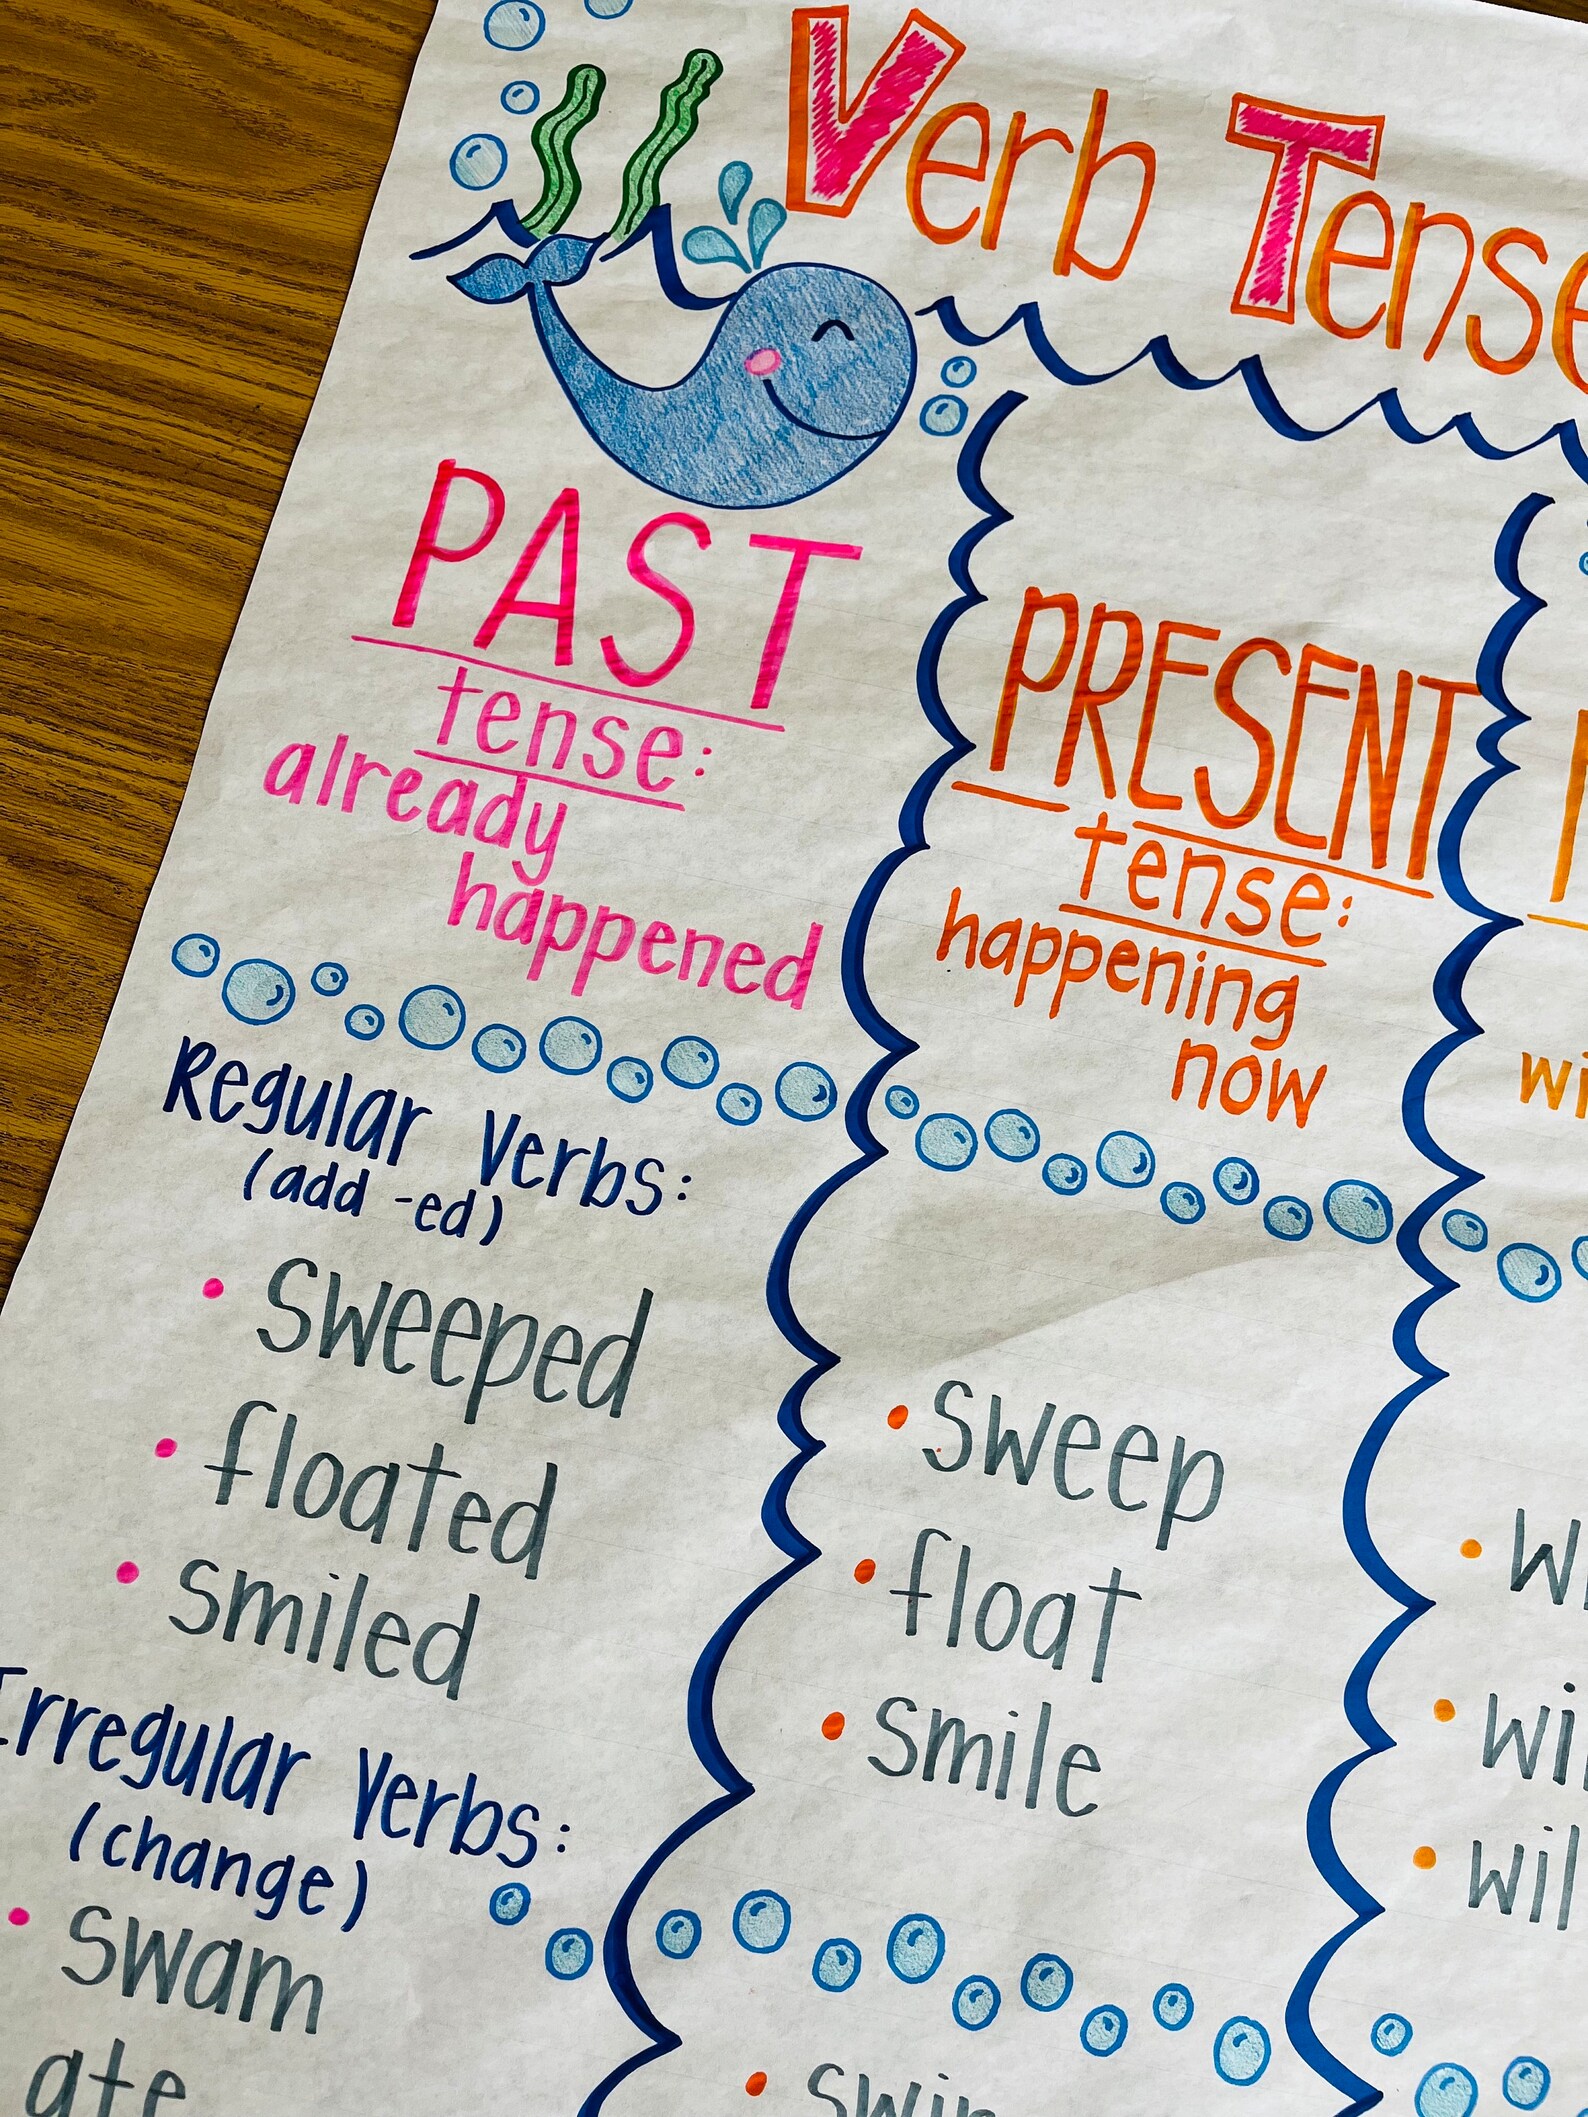 Verb Tense
PAST
tense:
already
happened
Regular Verbs:
(add -ed)
• sweeped
• floated
• smiled
Irregular Verbs:
(change)
• swam
ate
PRESENT
tense:
happening
now
• sweep
• float
• smile